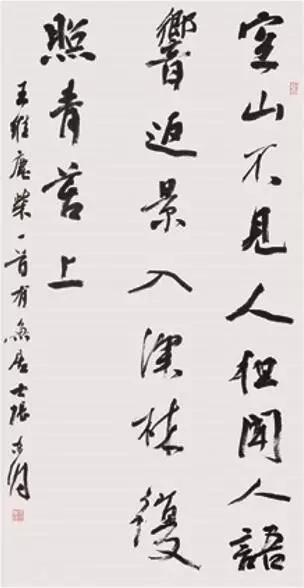 空山不見人但聞人語
響返景入深林復
照青苔上
王維鹿柴一首有魚居士張